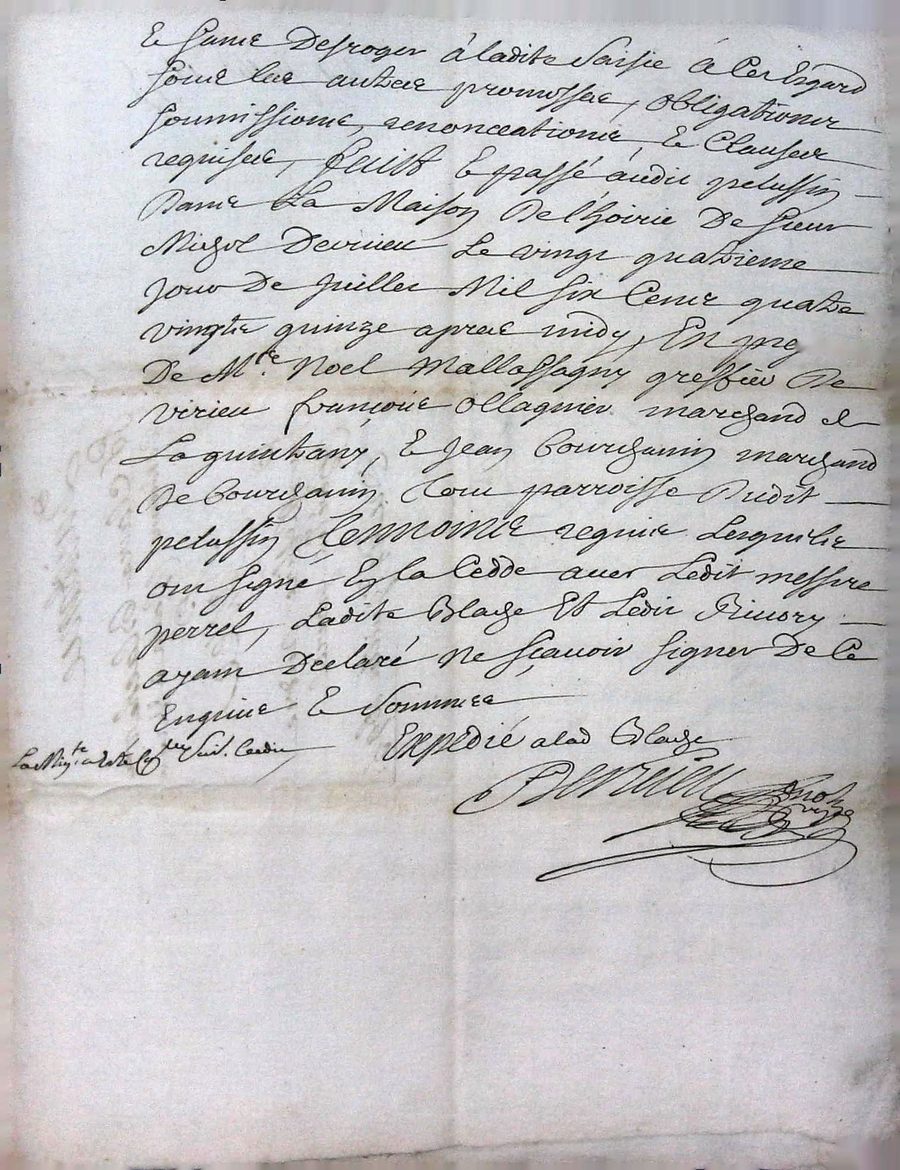 Et sans desroger à ladite saisie à cet Esgard
soubs les autres promesses, obligations
soumissions, renonceations, Et Clauses
requises, faict Et passé audit pelussin
dans La Maison De lhoirie De sieur
Michel Devrieu Le vingt quatrieme
jour De juillet Mil six Cens quatre
vingts quinze apres midy, En pnce
De Me. Noel Mallassagny greffier De
virieu françois ollagnier marchand de
La quintany, Et Jean bourchanin marchand
De bourchanin tous parroisse Dudit
pelussin temoins requis Lesquels
ont signé En la Cedde avec Ledit messire
perrel, Ladite Blache Et Ledit Rivory
ayant Declaré ne sçavoir signer De Ce
Enquis Et Sommes
Expedié a lad Blache
Devrieu